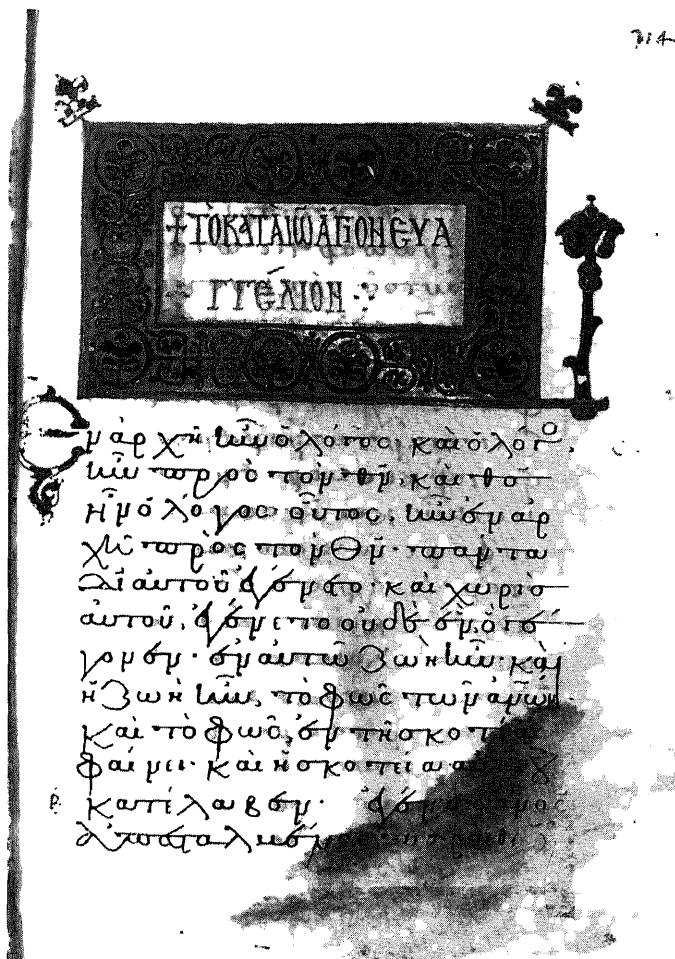 314
+ΤΟ ΚΑΤΑ ΙΩ ΑΓΙΟΝ ΕΥΑ
ΓΓΕΛΙΟΝ
Ἐν ἀρχῆ ἦν ὁ λόγος· καὶ ὁ λόγο
ἦν πρὸς τὸν θν̄· καὶ θσ̄
ἦν ὁ λόγος· οὗτος, ἦν ἐν ἀρ
χῆ πρὸς τὸν Θν̄· πάντα
δι αὐτοῦ ἐγένετο· καὶ χωρὶσ
αὐτοῦ, ἐγένετο οὐδὲ ἕν, ὃ γέ
γονεν· ἐν αὐτῶ ζωὴ ἦν· καὶ
ἡ ζωὴ ἦν, τὸ φῶς τῶν ἀνῶν
καὶ τὸ φῶς, ἐν τῆ σκοτεία
φαίνει· καὶ ἡ σκοτεία αὐτὸ οὐ
κατέλαβεν· ἐγένετο ἀνος
ἀπεσταλμένος